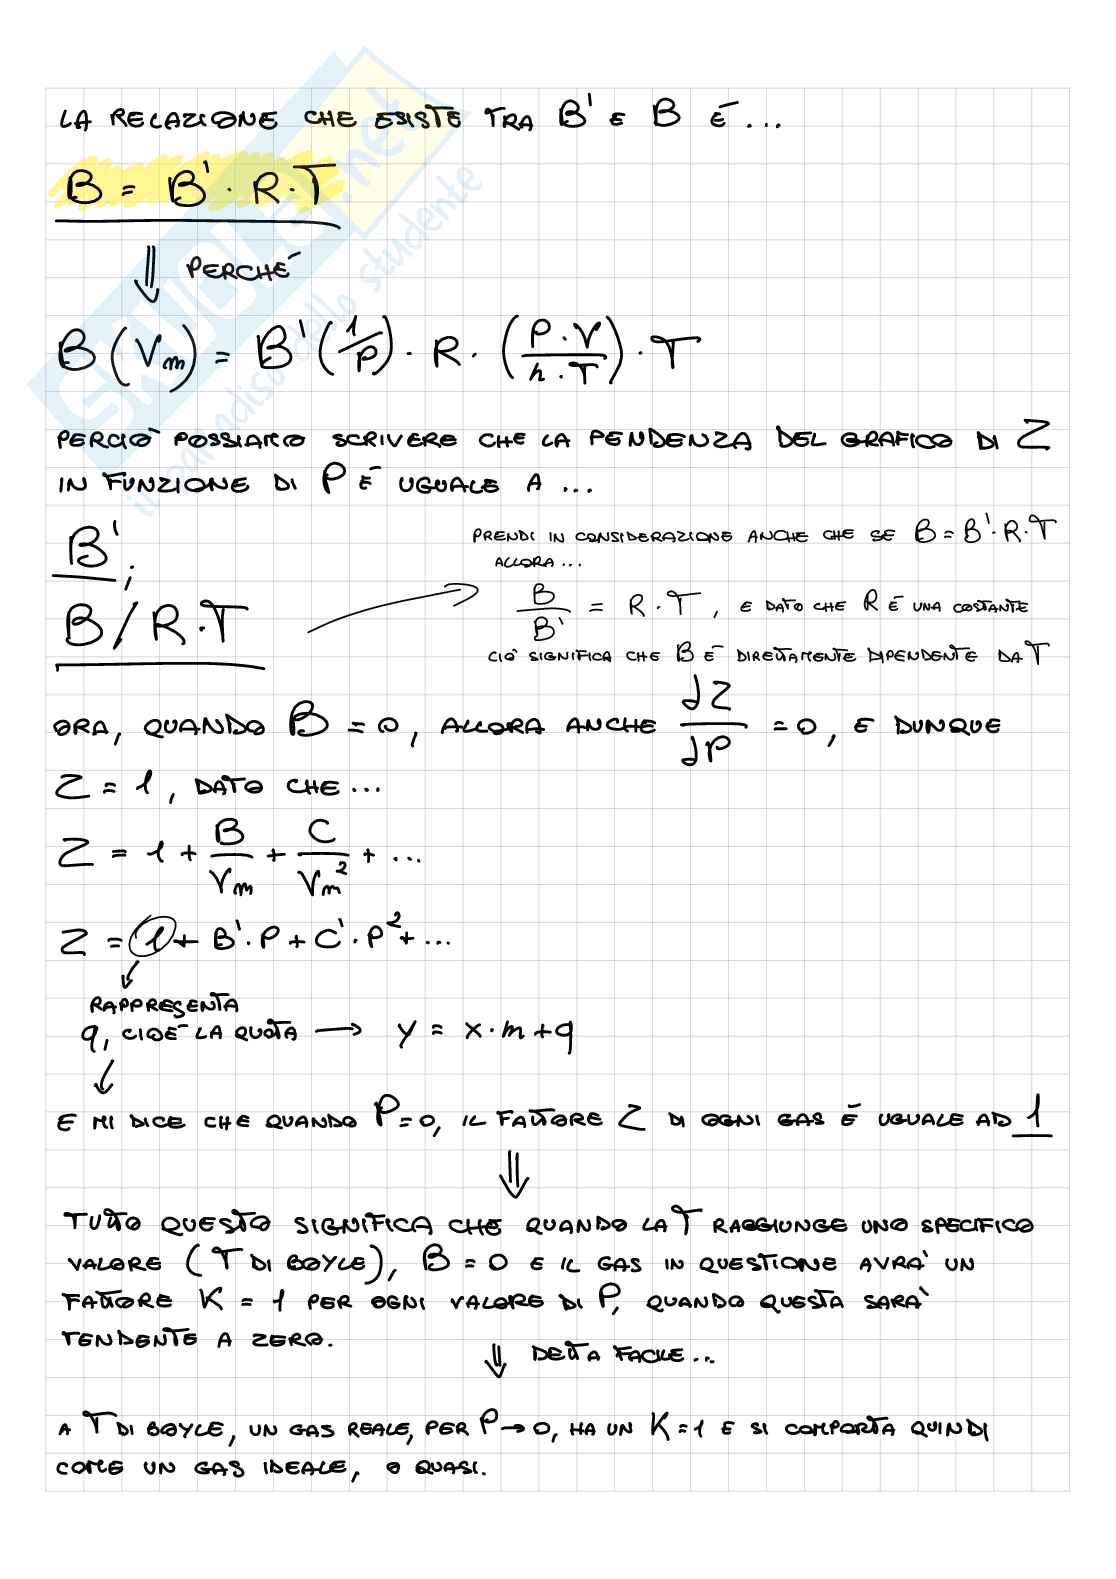 LA RELAZIONE CHE ESISTE TRA B' E B È...
B = B' · R · T
PERCHÉ
B (Vm) = B' (1/P) · R · (P · V / n · T) · T
PERCIÒ POSSIAMO SCRIVERE CHE LA PENDENZA DEL GRAFICO DI Z
IN FUNZIONE DI P È UGUALE A ...
B' ;
B / R · T
PRENDI IN CONSIDERAZIONE ANCHE CHE SE B = B' · R · T
ALLORA...
B / B' = R · T , E DATO CHE R È UNA COSTANTE
CIÒ SIGNIFICA CHE B È DIRETTAMENTE DIPENDENTE DA T
ORA, QUANDO B = 0, ALLORA ANCHE dZ / dP = 0, E DUNQUE
Z = 1, DATO CHE...
Z = 1 + B / Vm + C / Vm² + ...
Z = 1 + B' · P + C' · P² + ...
RAPPRESENTA
q, CIOÈ LA QUOTA → y = x · m + q
E MI DICE CHE QUANDO P = 0, IL FATTORE Z DI OGNI GAS È UGUALE AD 1
TUTTO QUESTO SIGNIFICA CHE QUANDO LA T RAGGIUNGE UNO SPECIFICO
VALORE (T DI BOYLE), B = 0 E IL GAS IN QUESTIONE AVRÀ UN
FATTORE K = 1 PER OGNI VALORE DI P, QUANDO QUESTA SARÀ
TENDENTE A ZERO.
DETTA FACILE...
A T DI BOYLE, UN GAS REALE, PER P → 0, HA UN K = 1 E SI COMPORTA QUINDI
COME UN GAS IDEALE, O QUASI.
SKUOLA.net
il paradiso dello studente